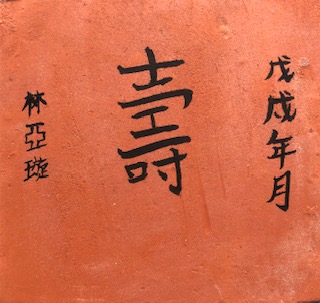 戊戌年月
壽
林亞璇